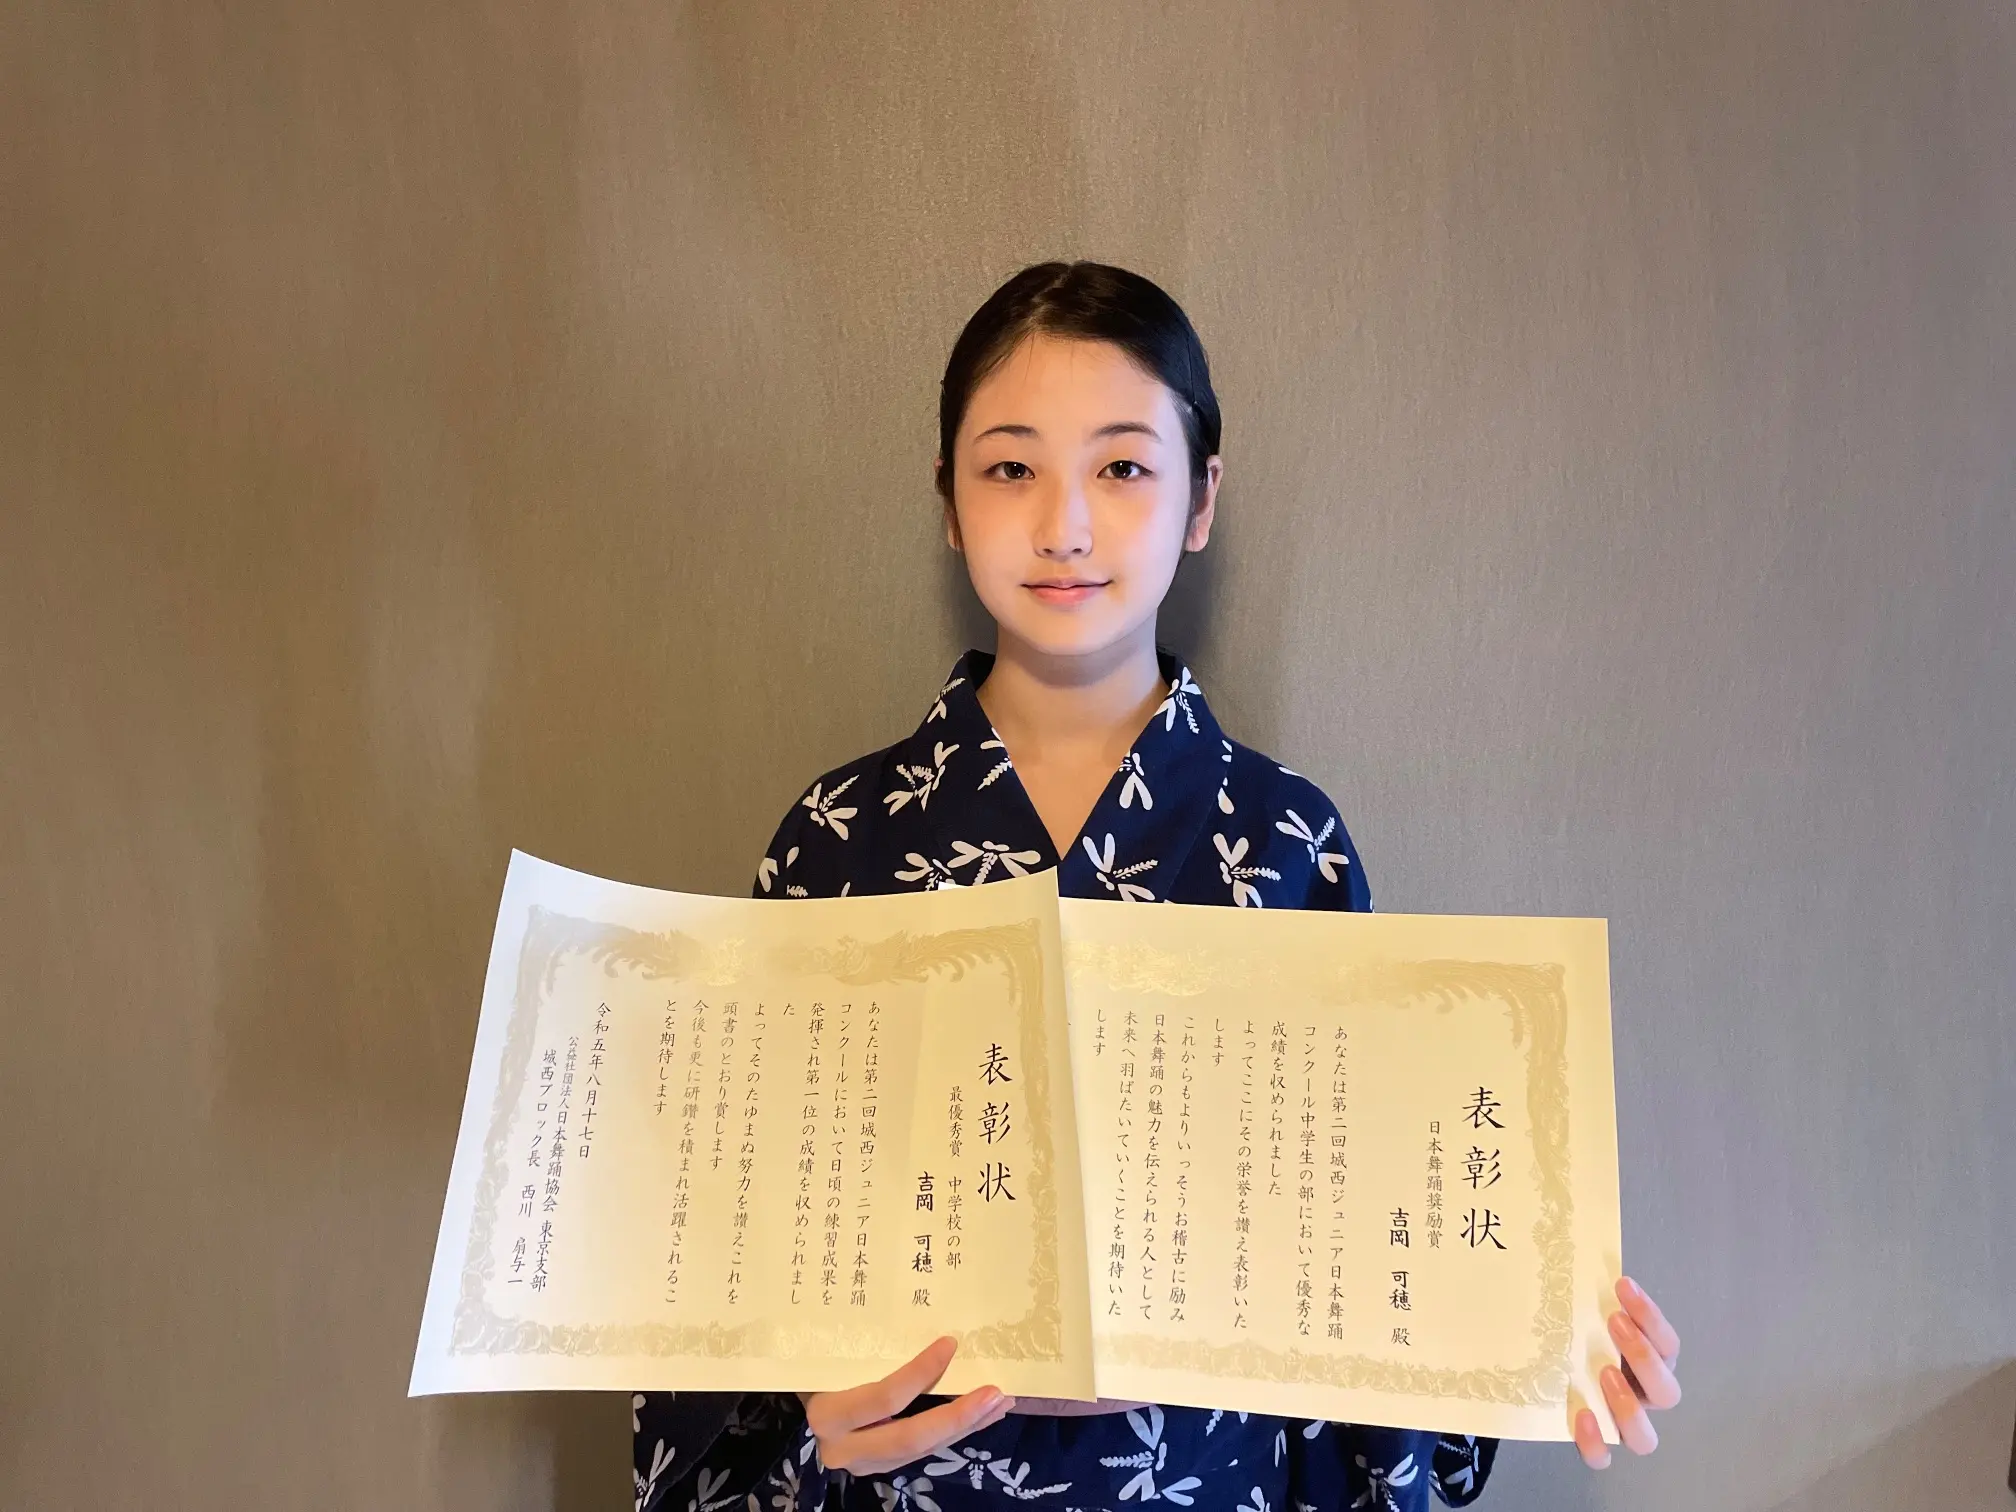 表彰状
最優秀賞 中学校の部
吉岡 可穂 殿
あなたは第二回城西ジュニア日本舞踊
コンクールにおいて日頃の練習成果を
発揮され第一位の成績を収められまし
た
よってそのたゆまぬ努力を讃えこれを
頭書のとおり賞します
今後も更に研鑽を積まれ活躍されるこ
とを期待します
令和五年八月十七日
公益社団法人日本舞踊協会 東京支部
城西ブロック長 西川 扇与一
表彰状
日本舞踊奨励賞
吉岡 可穂 殿
あなたは第二回城西ジュニア日本舞踊
コンクール中学生の部において優秀な
成績を収められました
よってここにその栄誉を讃え表彰いた
します
これからもよりいっそうお稽古に励み
日本舞踊の魅力を伝えられる人として
未来へ羽ばたいていくことを期待いた
します